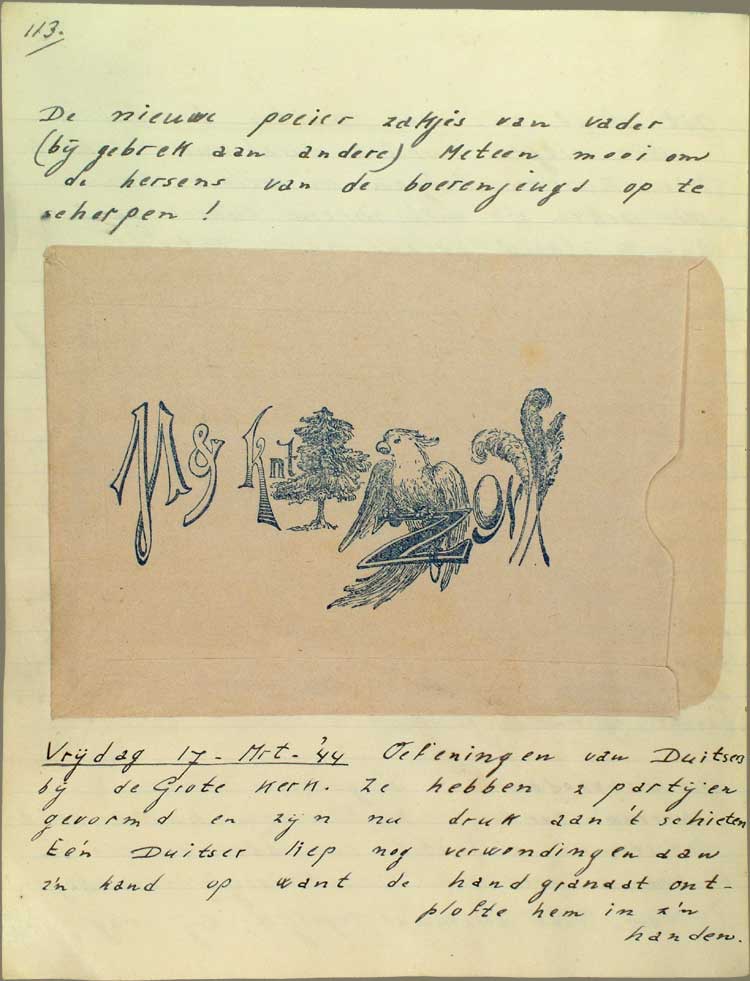 113.
De nieuwe poeier zakjes van vader
(bij gebrek aan andere) Meteen mooi om
de hersens van de boerenjeugd op te
scherpen !
M & knt
Z on
Vrijdag 17 - Mrt - '44 Oefeningen van Duitsers
bij de Grote Kerk. Ze hebben 2 partijen
gevormd en zijn nu druk aan 't schieten
Eén Duitser liep nog verwondingen aan
z'n hand op want de handgranaat ont-
plofte hem in z'n
handen.